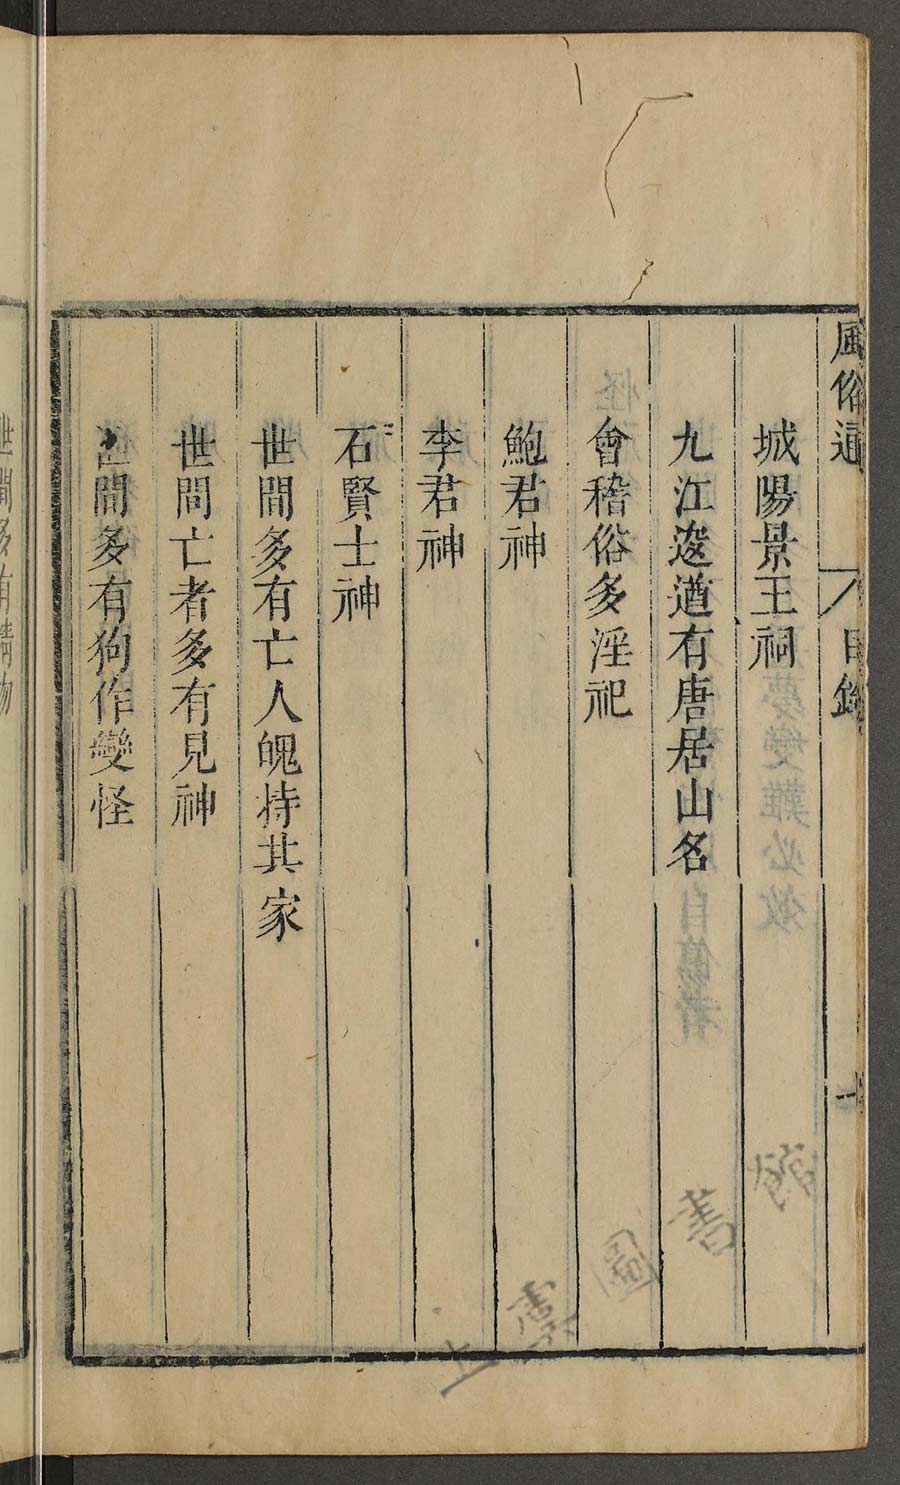 風俗通
目錄
城陽景王祠
九江逡遒有唐居山名
會稽俗多淫祀
鮑君神
李君神
石賢士神
世間多有亡人魄持其家
世間亡者多有見神
世間多有狗作變怪
世間多有精物